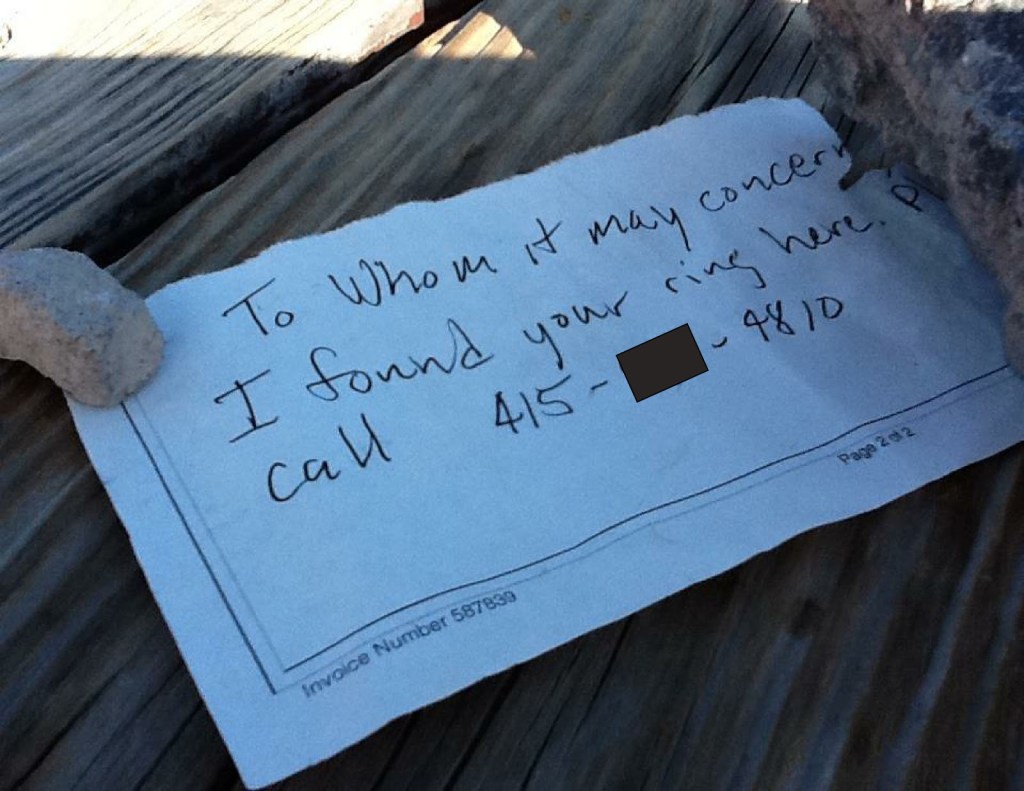 To Whom it may concern
I found your ring here. P
call 415- -4810
Page 2 of 2
Invoice Number 587839